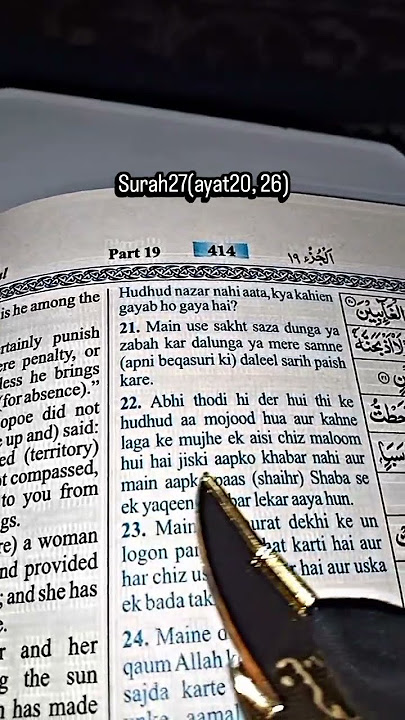 Surah27(ayat20, 26)
Part 19
414
الجزء ١٩
is he among the
rtainly punish
ere penalty, or
less he brings
(for absence)."
opoe did not
up and) said:
ed (territory)
ot compassed,
to you from
gs.
re) a woman
nd provided
; and she has
e.
r and her
g the sun
n has made
Hudhud nazar nahi aata, kya kahien
gayab ho gaya hai?
21. Main use sakht saza dunga ya
zabah kar dalunga ya mere samne
(apni beqasuri ki) daleel sarih paish
kare.
22. Abhi thodi hi der hui thi ke
hudhud aa mojood hua aur kahne
laga ke mujhe ek aisi chiz maloom
hui hai jiski aapko khabar nahi aur
main aapke paas (shaihr) Shaba se
ek yaqeen bar lekar aaya hun.
23. Main urat dekhi ke un
logon par at karti hai aur
har chiz us r hai aur uska
ek bada tak
24. Maine
qaum Allah
sajda karte
aamal